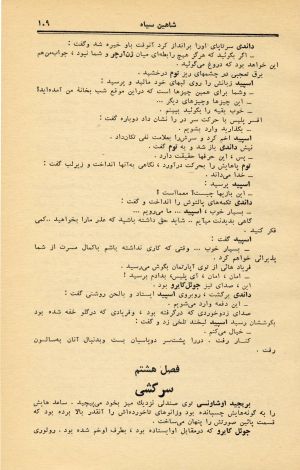 شاهین سیاه
۱۰۹
داندی سرتاپای اورا برانداز کرد آنوقت باو خیره شد وگفت :
ـ اگر بگوئید که هرگز هیچ رابطه‌ای میان زن‌آرچر و شما نبود ، جواب‌من‌هم
این خواهد بود که دروغ می‌گوئید .
برق تعجبی در چشمهای ریز توم درخشید .
اسپید زبانش را روی لبهای خود مالید و پرسید :
ـ وشما برای همین چیزها است که دراین موقع شب بخانهٔ من آمده‌اید؟
ـ این چیزها وچیزهای دیگر ...
ـ خوب بقیه را بگوئید ببینم .
افسر پلیس با حرکت سر در را نشان داد دوباره گفت :
ـ بگذارید وارد بشویم .
اسپید اخم کرد و سرش‌را بعلامت نفی تکان‌داد .
نیش داندی باز شد و به توم گفت :
ـ پس ، این حرفها حقیقت دارد .
توم پاهایش را بحرکت درآورد ، نگاهی به‌آنها انداخت و زیرلب گفت :
ـ خدا می‌داند .
اسپید پرسید :
ـ این بازیها چیست؟ معمااست !
داندی تکمه‌های پالتوش را انداخت و گفت :
ـ بسیار خوب ، اسپید ... ما می‌رویم ...
گاهی بدیدنت میآیم .. شاید حق داشته باشید که مارا بخواهید ..کمی
فکر کنید .
اسپید گفت :
ـ بسیار خوب ... وقتی که کاری نداشته باشم باکمال مسرت از شما
پذیرائی خواهم کرد .
فریاد هائی از توی آپارتمان بگوش می‌رسید .
ـ امان ، امان ، آی پلیس، بدادم برسید !
این ، صدای لیز جوئل‌کایرو بود .
داندی برگشت ، روبروی اسپید ایستاد و بالحن روشنی گفت :
ـ این دفعه وارد می‌شویم .
صدای زدوخوردی که درگرفته بود ، وفریادی که درگلو خفه شده بود
بگوششان رسید اسپید لبخند تلخی زد و گفت :
ـ خیال می‌کنم .
کنار رفت ، دررا پشت‌سر دوپاسبان بست وبدنبال آنان به‌سالون
رفت .
فصل هشتم
سرکشی
بریجید اوشانوسی توی صندلی نزدیک میز بخود می‌پیچید . ساعد هایش
را به گونه‌هایش چسبانده بود وزانوهای تاخورده‌اش را آنقدر بالا برده بود که
قسمت پائین صورتش را پنهان می‌ساخت .
جوئل کایرو که درمقابل اوایستاده بود ، بطرف اوخم شده بود . رولوری